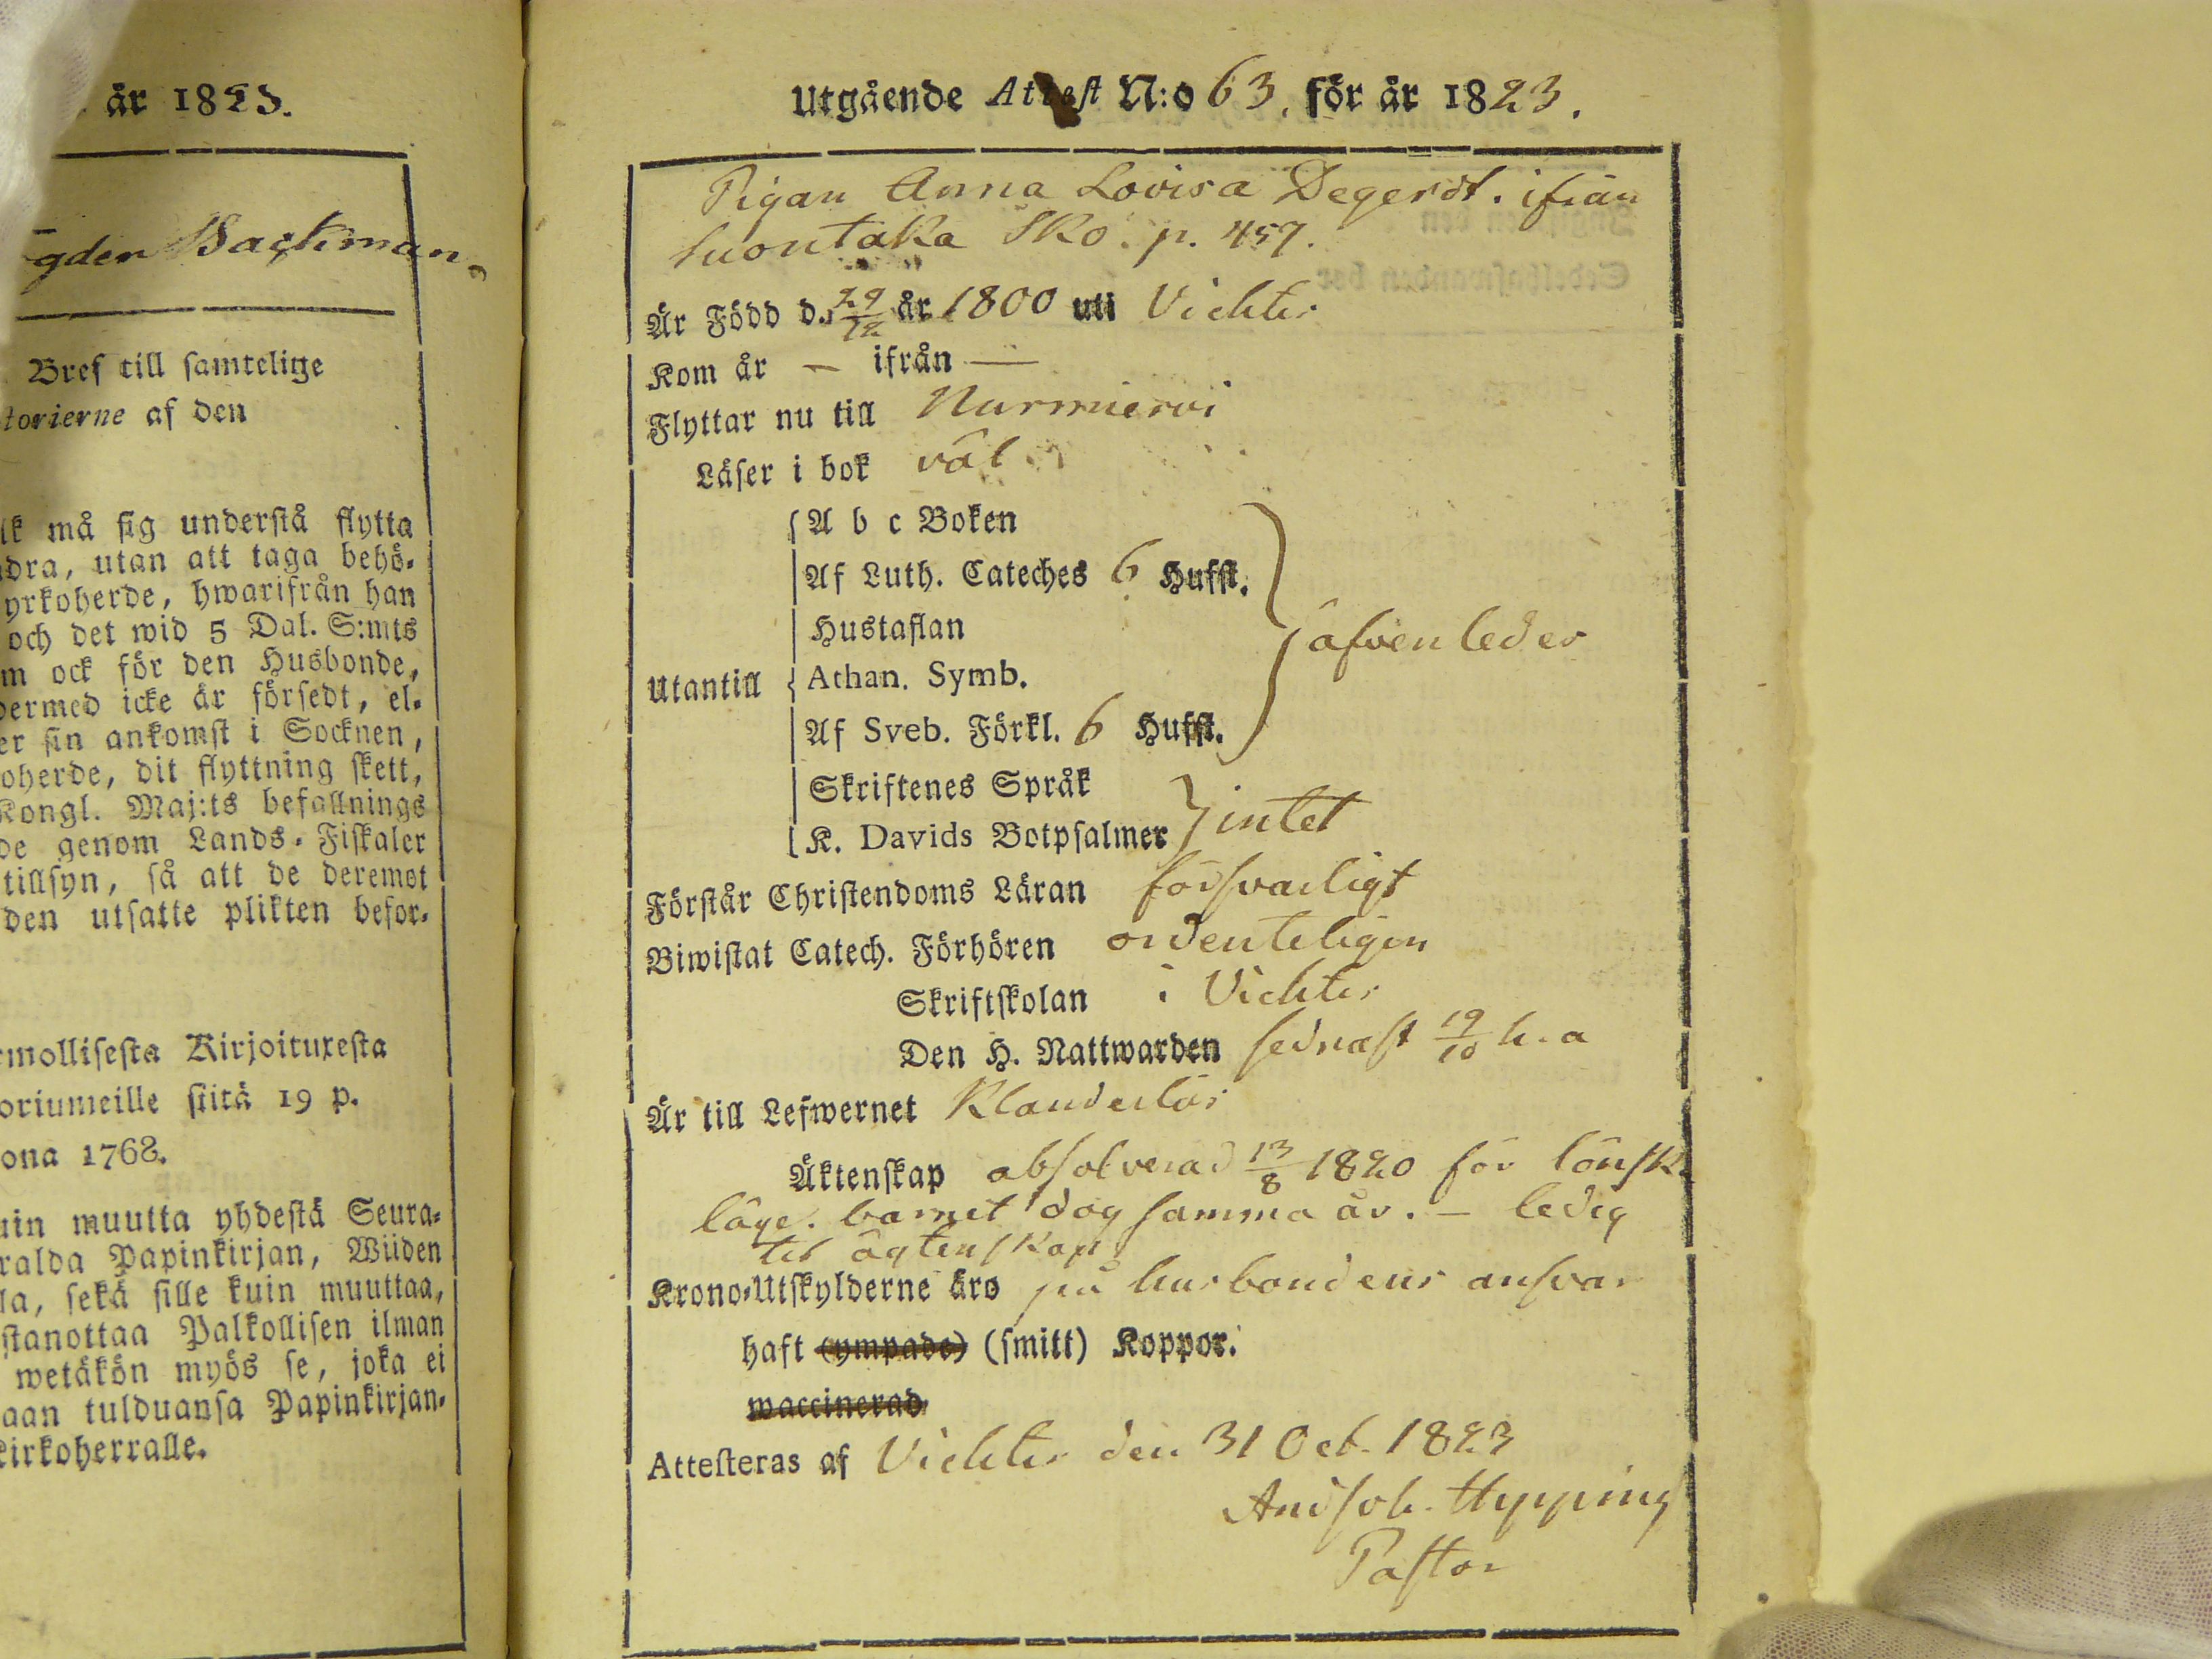 år 1823.
gden Backman,
Bref till samtelige
torierne af den
lk må sig understå flytta
dra, utan att taga behö-
yrkoherde, hwarifrån han
och det wid 5 Dal. S:mts
m ock för den Husbonde,
dermed icke är försedt, el-
er sin ankomst i Socknen,
oherde, dit flyttning skett,
Kongl. Maj:ts befallnings
de genom Lands-Fiskaler
tillsyn, så att de deremot
den utsatte plikten befor-
rmollisesta Kirjoituxesta
oriumeille siitä 19 p.
ona 1768.
uin muutta yhdestä Seura-
ralda Papinkirjan, Wiiden
la, sekä sille kuin muuttaa,
stanottaa Palkollisen ilman
wetäkön myös se, joka ei
aan tulduansa Papinkirjan-
Kirkoherralle.
Utgående Attest N:o 63. för år 1823.
Pigan Anna Lovisa Degeröt. ifrån
Luontaka Sko. p. 457.
Är Född d. 29/12 år 1800 uti Vichtis
Kom år — ifrån —
Flyttar nu till Nurmiervi
Läser i bok väl
A b c Boken
Af Luth. Cateches 6 Hufst.
Hustaflan
Utantill Athan. Symb. äfven leder
Af Sveb. Förkl. 6 Hufst.
Skriftenes Språk
K. Davids Botpsalmer intet
Förstår Christendoms Läran försvarligt
Biwistat Catech. Förhören ordenteligen
Skriftskolan i Vichtis
Den H. Nattwarden sednast 19/10 h. a
Är till Lefwernet Klanderlös
Äktenskap absolverad 13/8 1820 för lönsk
läge. barnet dog samma år. — ledig
til ägtenskap
Krono-Utskylderne äro på husbondens ansvar
haft (ympade) (smitt) Koppor.
waccinerad
Attesteras af Vichtis den 31 Oct. 1823
And Joh. Hypping
Pastor